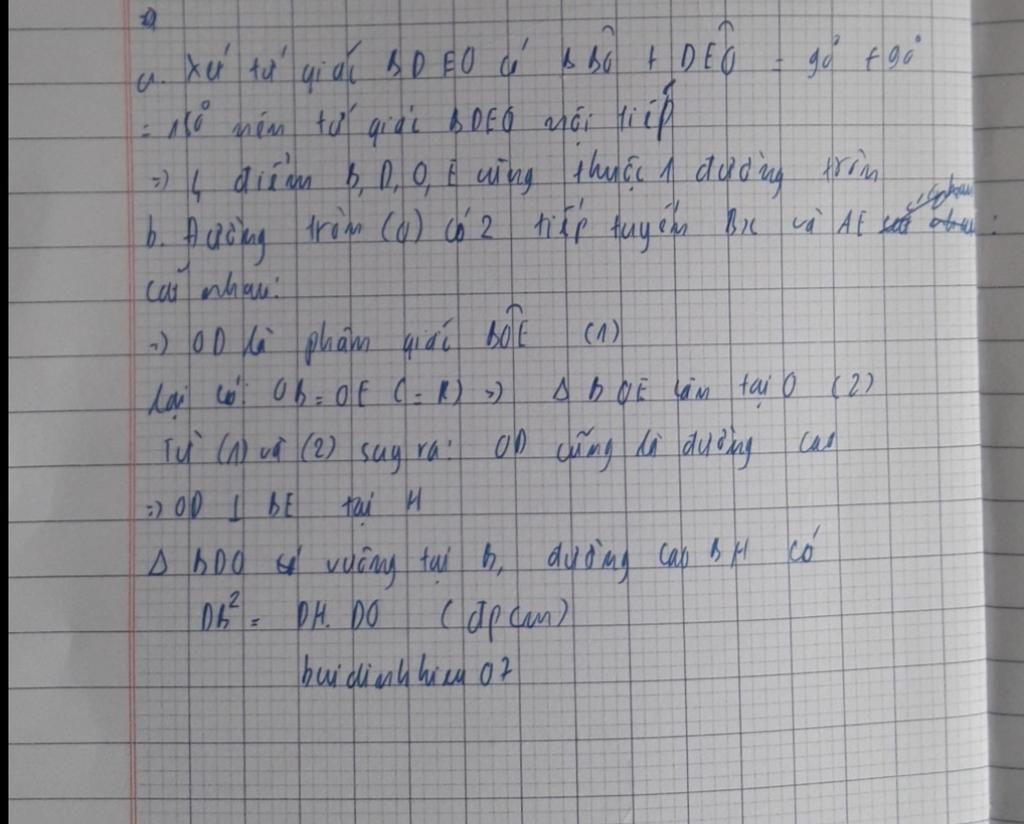 a. Xét tứ giác BDEO có DBO + DEO = 90° + 90°
= 180° nên tứ giác BDEO nội tiếp
=) 4 điểm B, D, O, E cùng thuộc 1 đường tròn
b. Đường tròn (O) có 2 tiếp tuyến Bx và AE
cắt nhau:
=) OD là phân giác BOE (1)
Lại có: OB = OE (= R) =) Δ BOE cân tại O (2)
Từ (1) và (2) suy ra: OD cũng là đường cao
=) OD ⊥ BE tại H
Δ BDO vuông tại B, đường cao BH có
DB² = DH. DO (đpcm)
buidinhhieu 07